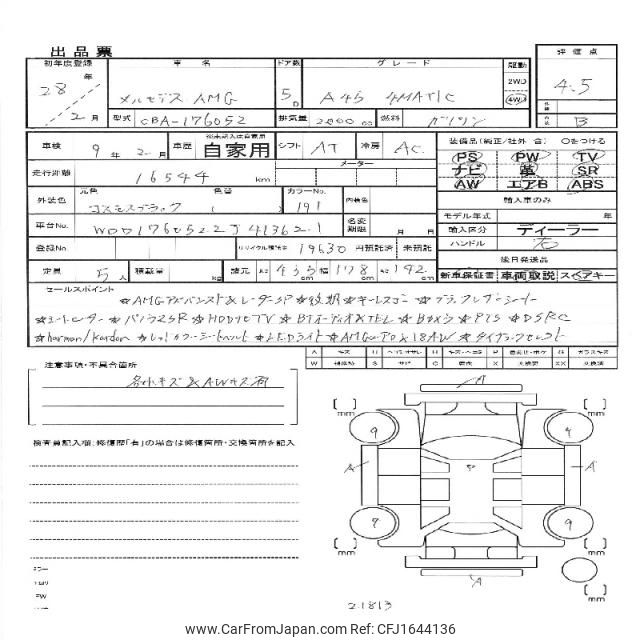 出品票
初年度登録 車名 ドア数 グレード 駆動 評価点
28年 2月 メルセデス AMG 5D A45 4MATIC 2WD 4WD 4.5
型式 CBA-176052 排気量 2000cc 燃料 ガソリン B
車検 9年2月 車歴 自家用 シフト AT 冷房 AC
装備品(純正/社外 含) ○をつける
PS PW TV
ナビ 革 SR
AW エアB ABS
走行距離 16544 km メーター
外装色 元色 コスモスブラック 色替 ( ) カラーNo. 191 内装色
輸入車のみ
モデル年式 年
車台No. WDD1760522J413621 名変期限 月 日
輸入区分 ディーラー
ハンドル 右
登録No. リサイクル預託金 19630 円預託済 未預託
後日発送品
定員 5人 積載量 kg 諸元 長さ 435 幅 178 高さ 142
新車保証書 車両取説 スペアキー
セールスポイント
★AMGアドバンスト&レーダーSP★後期★キーレスゴー★ブラックレザーシート
★シートヒーター★パノラマSR★HDDナビTV★BTオーディオ&TEL★Bカメラ★PTS★DSRC
★harman/kardon★レッドカラーシートベルト★LEDライト★AMGエアロ&18AW★ダイナミックセレクト
注意事項・不具合箇所
各小キズ&AWキズ有
検査員記入欄:修復歴「有」の場合は修復箇所・交換箇所を記入
A
9 4
A A
7 9
A
[ ] mm
[ ] mm
[ ] mm
[ ] mm
[ ] mm
21813
www.CarFromJapan.com Ref: CFJ1644136